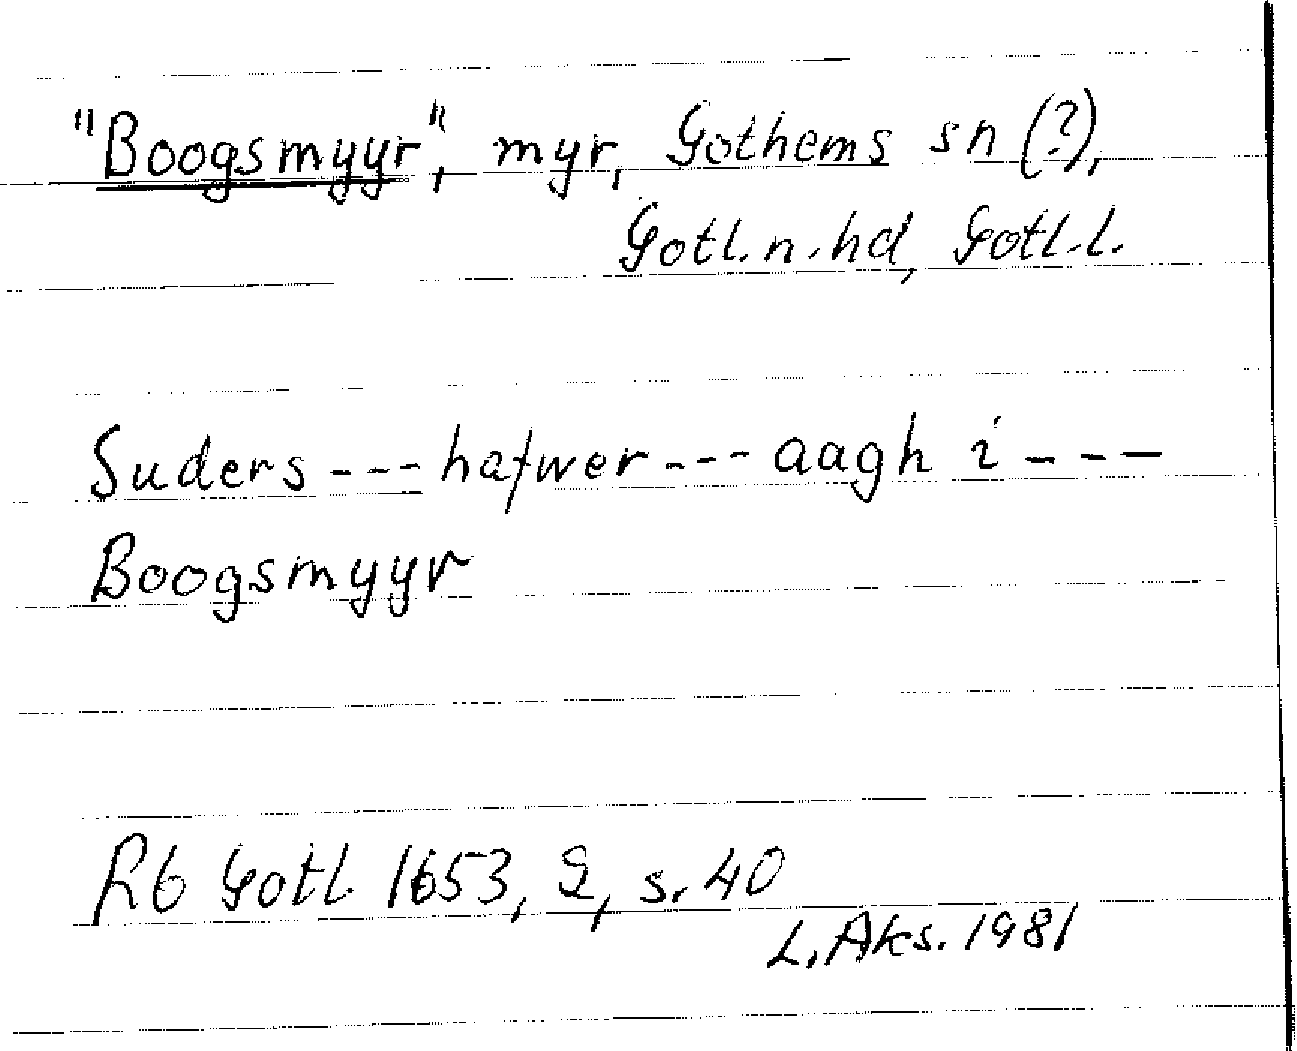 "Boogsmyyr", myr, Gothems sn (?),
Gotl. n. hd, Gotl. l.
Suders --- hafwer --- aagh i ---
Boogsmyyr
Rb Gotl 1653, 2, s. 40
L. Aks. 1981